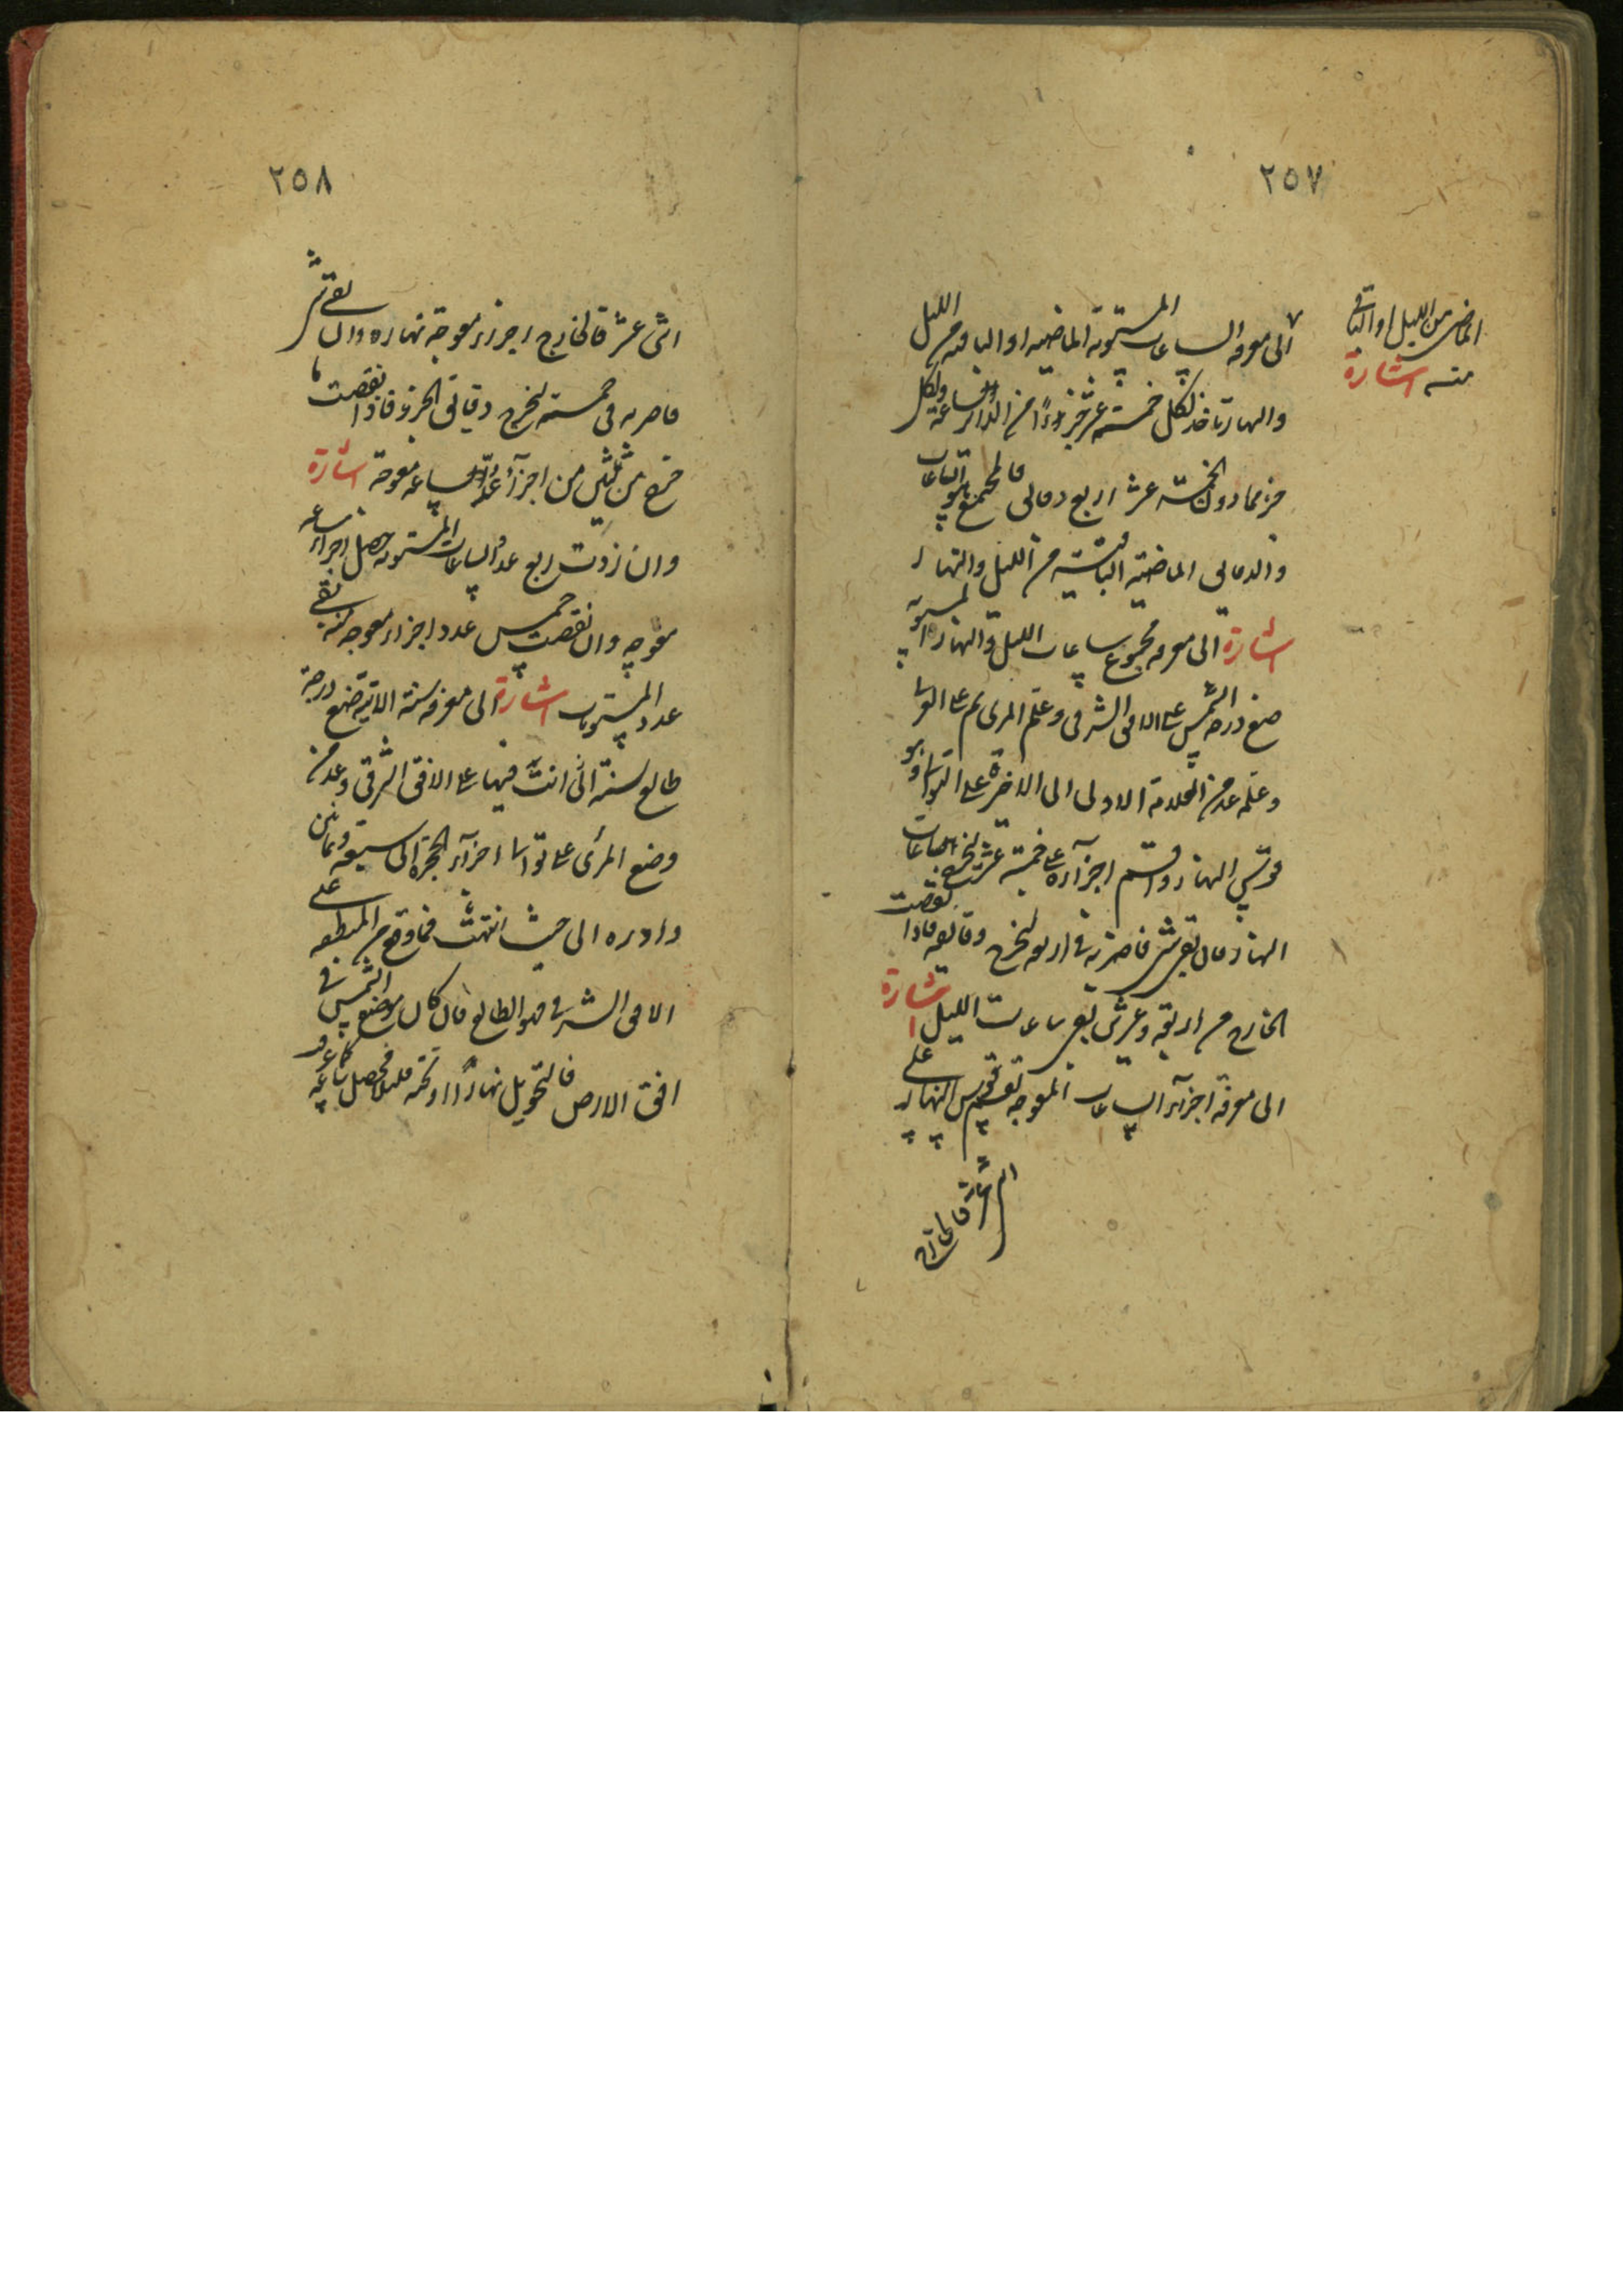 ٢٥٧
الماضى من الليل او الباقى
منه اشارة
الى معرفة الساعات المستوية الماضية او الباقية من الليل
والنهار تاخذ لكل خمسة عشر جزءًا من الدائر ساعة ولكل
جزء مما دون الخمسة عشر اربع دقائق فالمجتمع هو الساعات
والدقائق الماضية الباقية من الليل والنهار
اشارة الى معرفة مجموع ساعات الليل والنهار المستوية
ضع درجة الشمس على الافق الشرقى وعلم المرى ثم على
وعلمه عد من العلامة الاولى الى الاخرة على التوالى وهو
قوس النهار واقسم اجزآءه على خمسة عشر ليخرج ساعات
النهار فان بقى شئ فاضربه فى اربعة ليخرج دقايقه فاذا نقصت
الخارج من اربعة وعشرين بقى ساعات الليل اشارة
الى معرفة اجزآء الساعات المعوجة تقسم قوس النهار على
اثنى عشر فالخارج
٢٥٨
اثنى عشر فالخارج اجزاء معوجة نهاره وان بقى شئ
فاضربه فى خمسة ليخرج دقائق الجزء فاذا نقصت ما
خرج من ثلثين من اجزآء ساعة معوجة اشارة
وان زدت ربع عدد الساعات المستوية حصل اجزاء ساعة
معوجه وان نقصت خمس عدد اجزاء معوجة منه بقى
عدد المستويات اشارة الى معرفة سنة الاتية تضع درجة
طالع سنة التى انت فيها على الافق الشرقى وعد من
وضع المرى على توالى اجزآء الحجرة الى سبعة وثمانين
وادره الى حيث انتهت فما وقع من المنطقة على
الافق الشرقى فهو الطالع فان كان موضع الشمس فى
افق الارض فالتحويل نهارًا او تحته فليلا فحصل ساعة كما عرفت